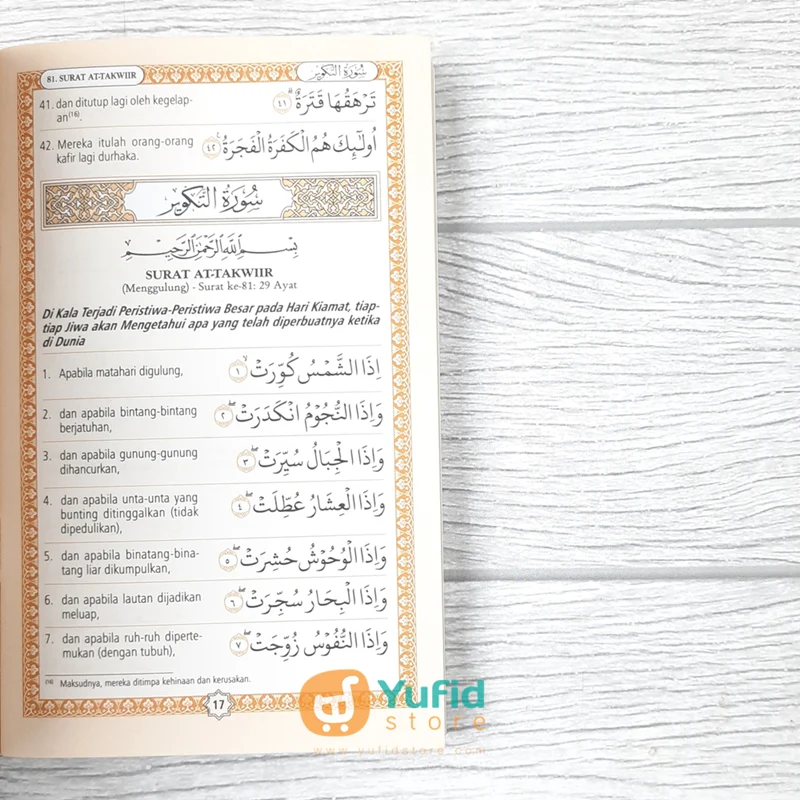 81. SURAT AT-TAKWIIR سُورَةُ التَّكْوِيرِ
41. dan ditutup lagi oleh kegelap-
an⁽¹⁶⁾.
تَرْهَقُهَا قَتَرَةٌ ۗ ﴿٤١﴾
42. Mereka itulah orang-orang
kafir lagi durhaka.
اُولٰۤىِٕكَ هُمُ الْكَفَرَةُ الْفَجَرَةُ ࣖ ﴿٤٢﴾
سُورَةُ التَّكْوِيرِ
بِسْمِ اللّٰهِ الرَّحْمٰنِ الرَّحِيْمِ
SURAT AT-TAKWIIR
(Menggulung) - Surat ke-81: 29 Ayat
Di Kala Terjadi Peristiwa-Peristiwa Besar pada Hari Kiamat, tiap-
tiap Jiwa akan Mengetahui apa yang telah diperbuatnya ketika
di Dunia
1. Apabila matahari digulung,
اِذَا الشَّمْسُ كُوِّرَتْ ۙ ﴿١﴾
2. dan apabila bintang-bintang
berjatuhan,
وَاِذَا النُّجُوْمُ انْكَدَرَتْ ۖ ﴿٢﴾
3. dan apabila gunung-gunung
dihancurkan,
وَاِذَا الْجِبَالُ سُيِّرَتْ ۖ ﴿٣﴾
4. dan apabila unta-unta yang
bunting ditinggalkan (tidak
dipedulikan),
وَاِذَا الْعِشَارُ عُطِّلَتْ ۖ ﴿٤﴾
5. dan apabila binatang-bina-
tang liar dikumpulkan,
وَاِذَا الْوُحُوْشُ حُشِرَتْ ۖ ﴿٥﴾
6. dan apabila lautan dijadikan
meluap,
وَاِذَا الْبِحَارُ سُجِّرَتْ ۖ ﴿٦﴾
7. dan apabila ruh-ruh diperte-
mukan (dengan tubuh),
وَاِذَا النُّفُوْسُ زُوِّجَتْ ۖ ﴿٧﴾
⁽¹⁶⁾ Maksudnya, mereka ditimpa kehinaan dan kerusakan.
17
Yufid
store
www.yufidstore.com